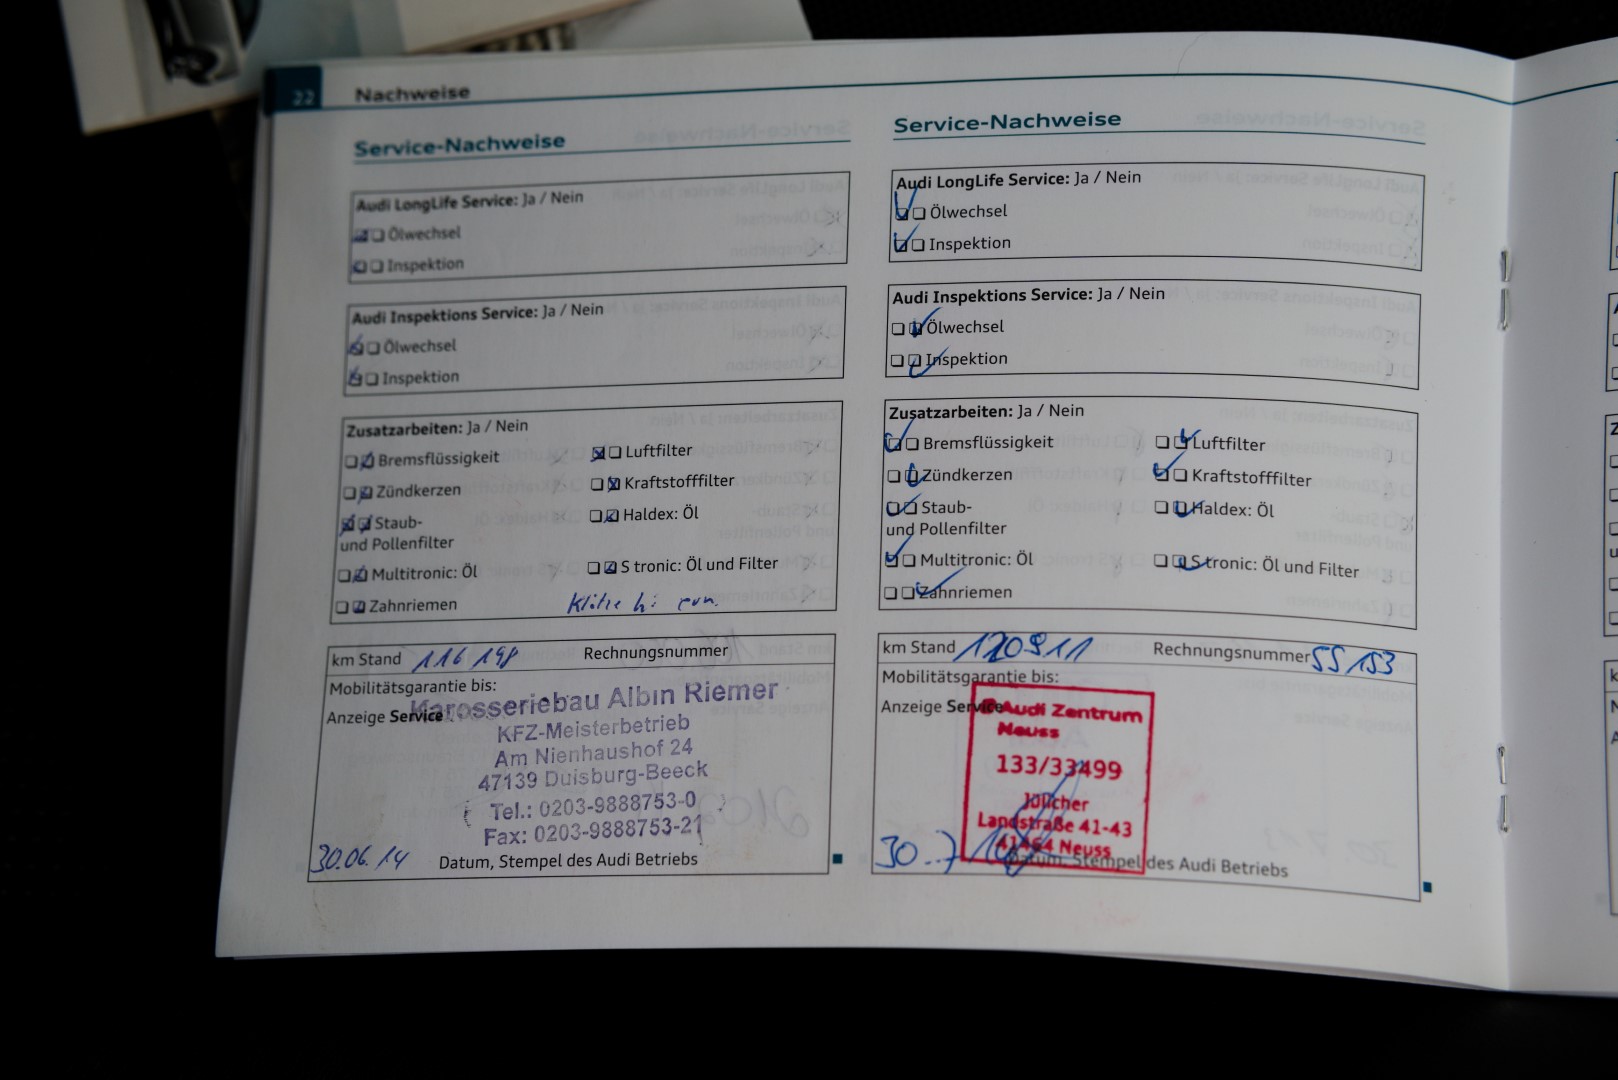 22 Nachweise
Service-Nachweise
Audi LongLife Service: Ja / Nein
Ölwechsel
Inspektion
Audi Inspektions Service: Ja / Nein
Ölwechsel
Inspektion
Zusatzarbeiten: Ja / Nein
Bremsflüssigkeit
Luftfilter
Zündkerzen
Kraftstofffilter
Staub-
und Pollenfilter
Haldex: Öl
Multitronic: Öl
S tronic: Öl und Filter
Zahnriemen
km Stand 116 198 Rechnungsnummer
Mobilitätsgarantie bis:
Anzeige Service
Karosseriebau Albin Riemer
KFZ-Meisterbetrieb
Am Nienhaushof 24
47139 Duisburg-Beeck
Tel.: 0203-9888753-0
Fax: 0203-9888753-21
30.06.14 Datum, Stempel des Audi Betriebs
Service-Nachweise
Audi LongLife Service: Ja / Nein
Ölwechsel
Inspektion
Audi Inspektions Service: Ja / Nein
Ölwechsel
Inspektion
Zusatzarbeiten: Ja / Nein
Bremsflüssigkeit
Luftfilter
Zündkerzen
Kraftstofffilter
Staub-
und Pollenfilter
Haldex: Öl
Multitronic: Öl
S tronic: Öl und Filter
Zahnriemen
km Stand Rechnungsnummer 55153
Mobilitätsgarantie bis:
Anzeige Service
Audi Zentrum
Neuss
133/33499
Jülicher
Landstraße 41-43
41464 Neuss
30.7.14 Datum, Stempel des Audi Betriebs